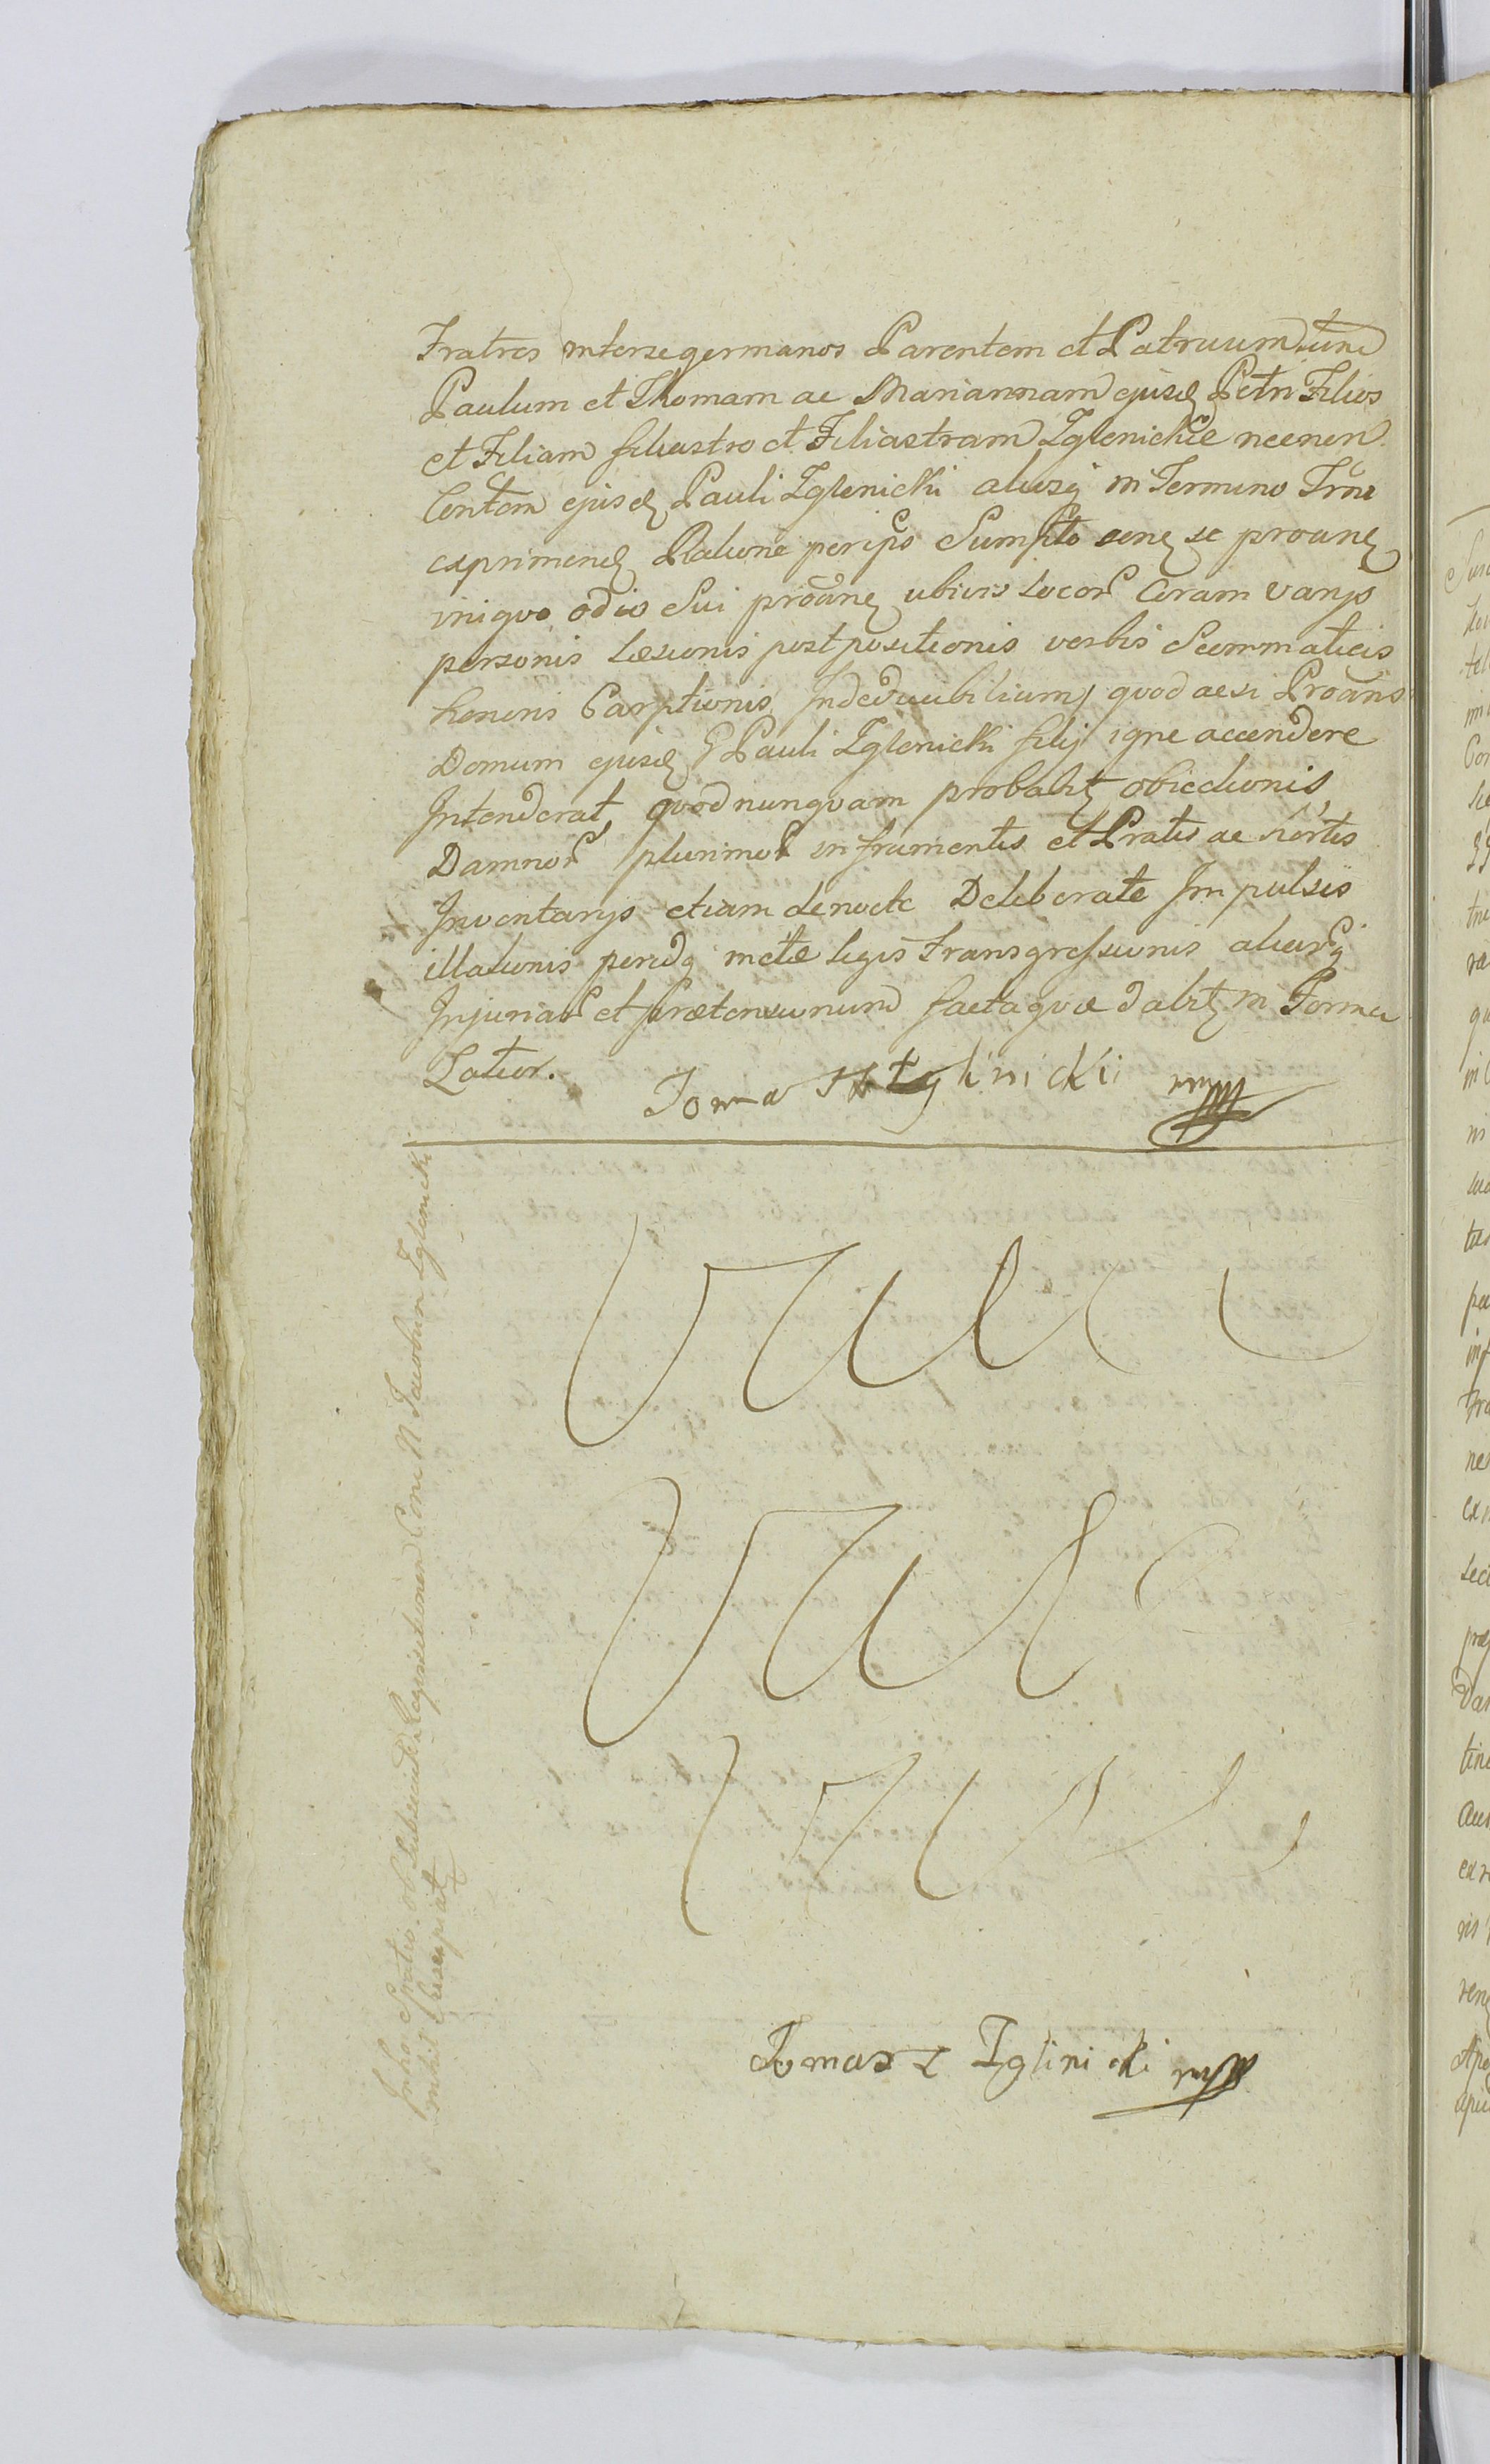 Fratres interse germanos Parentem et Patruum tum
Paulum et Thomam ac Mariannam ejusd Petri Filios
et Filiam filiastro et Filiastram Iglenickie necnon
Contem ejusd Pauli Iglenicki aliisq in Termino Trne
exprimend Ratione per ipso Sumpto
iniquo odio Sui ubivis locor Coram varys
personis læsionis postpositionis verbis Scommaticis
honoris Carptionis Indeducibilium quod acsi
Domum ejusd G Pauli Iglenicki filij igne accendere
Intenderat quod nunquam probabit obiectionis
Damnor plurimor in frumentis et Pratis ac hortis
Inventarys etiam de nocte Deliberate Impulsis
illationis peridq metæ legis transgressionis aliarq
Injuriar et prætensionum facta quæ dabit in Forma
Latior. Toma Iglinicki mpp
Vale
Vale
Vale
Tomasz Iglinicki mpp
In hoc Spatio ob Requisitionem Con N Jacobum Iglenicki
inhibit suscipiat